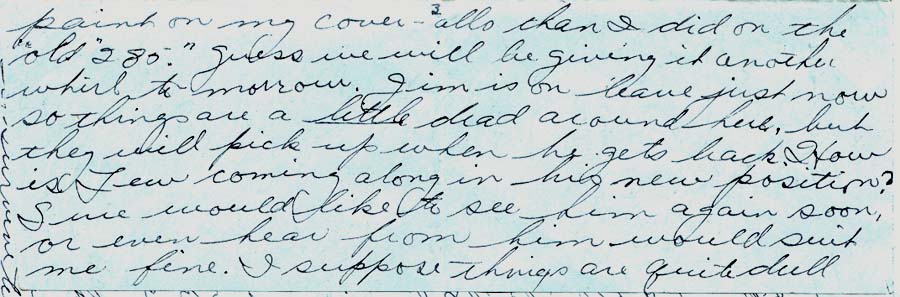 paint on my cover-alls than I did on the
"old "235." Guess we will be giving it another
whirl to morrow. Jim is on leave just now
so things are a little dead around here, but
they will pick up when he gets back. How
is Lew coming along in his new position?
Sure would like to see him again soon,
or even hear from him would suit
me fine. I suppose things are quite dull